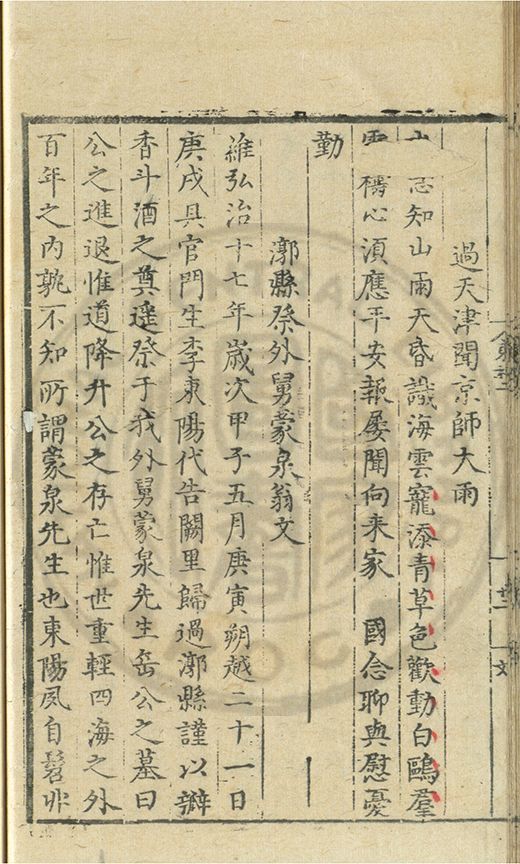 過天津聞京師大雨
知山雨天昏識海雲寵添青草色歡動白鷗羣
禱心須應平安報屢聞向来家 國念聊與慰憂
勤
漷縣祭外舅蒙泉翁文
維弘治十七年歲次甲子五月庚寅朔越二十一日
庚戌具官門生李東陽代告闕里歸過漷縣謹以瓣
香斗酒之奠遥祭于我外舅蒙泉先生岳公之墓曰
公之進退惟道降升公之存亡惟世重輕四海之外
百年之内孰不知所謂蒙泉先生也東陽夙自髫丱